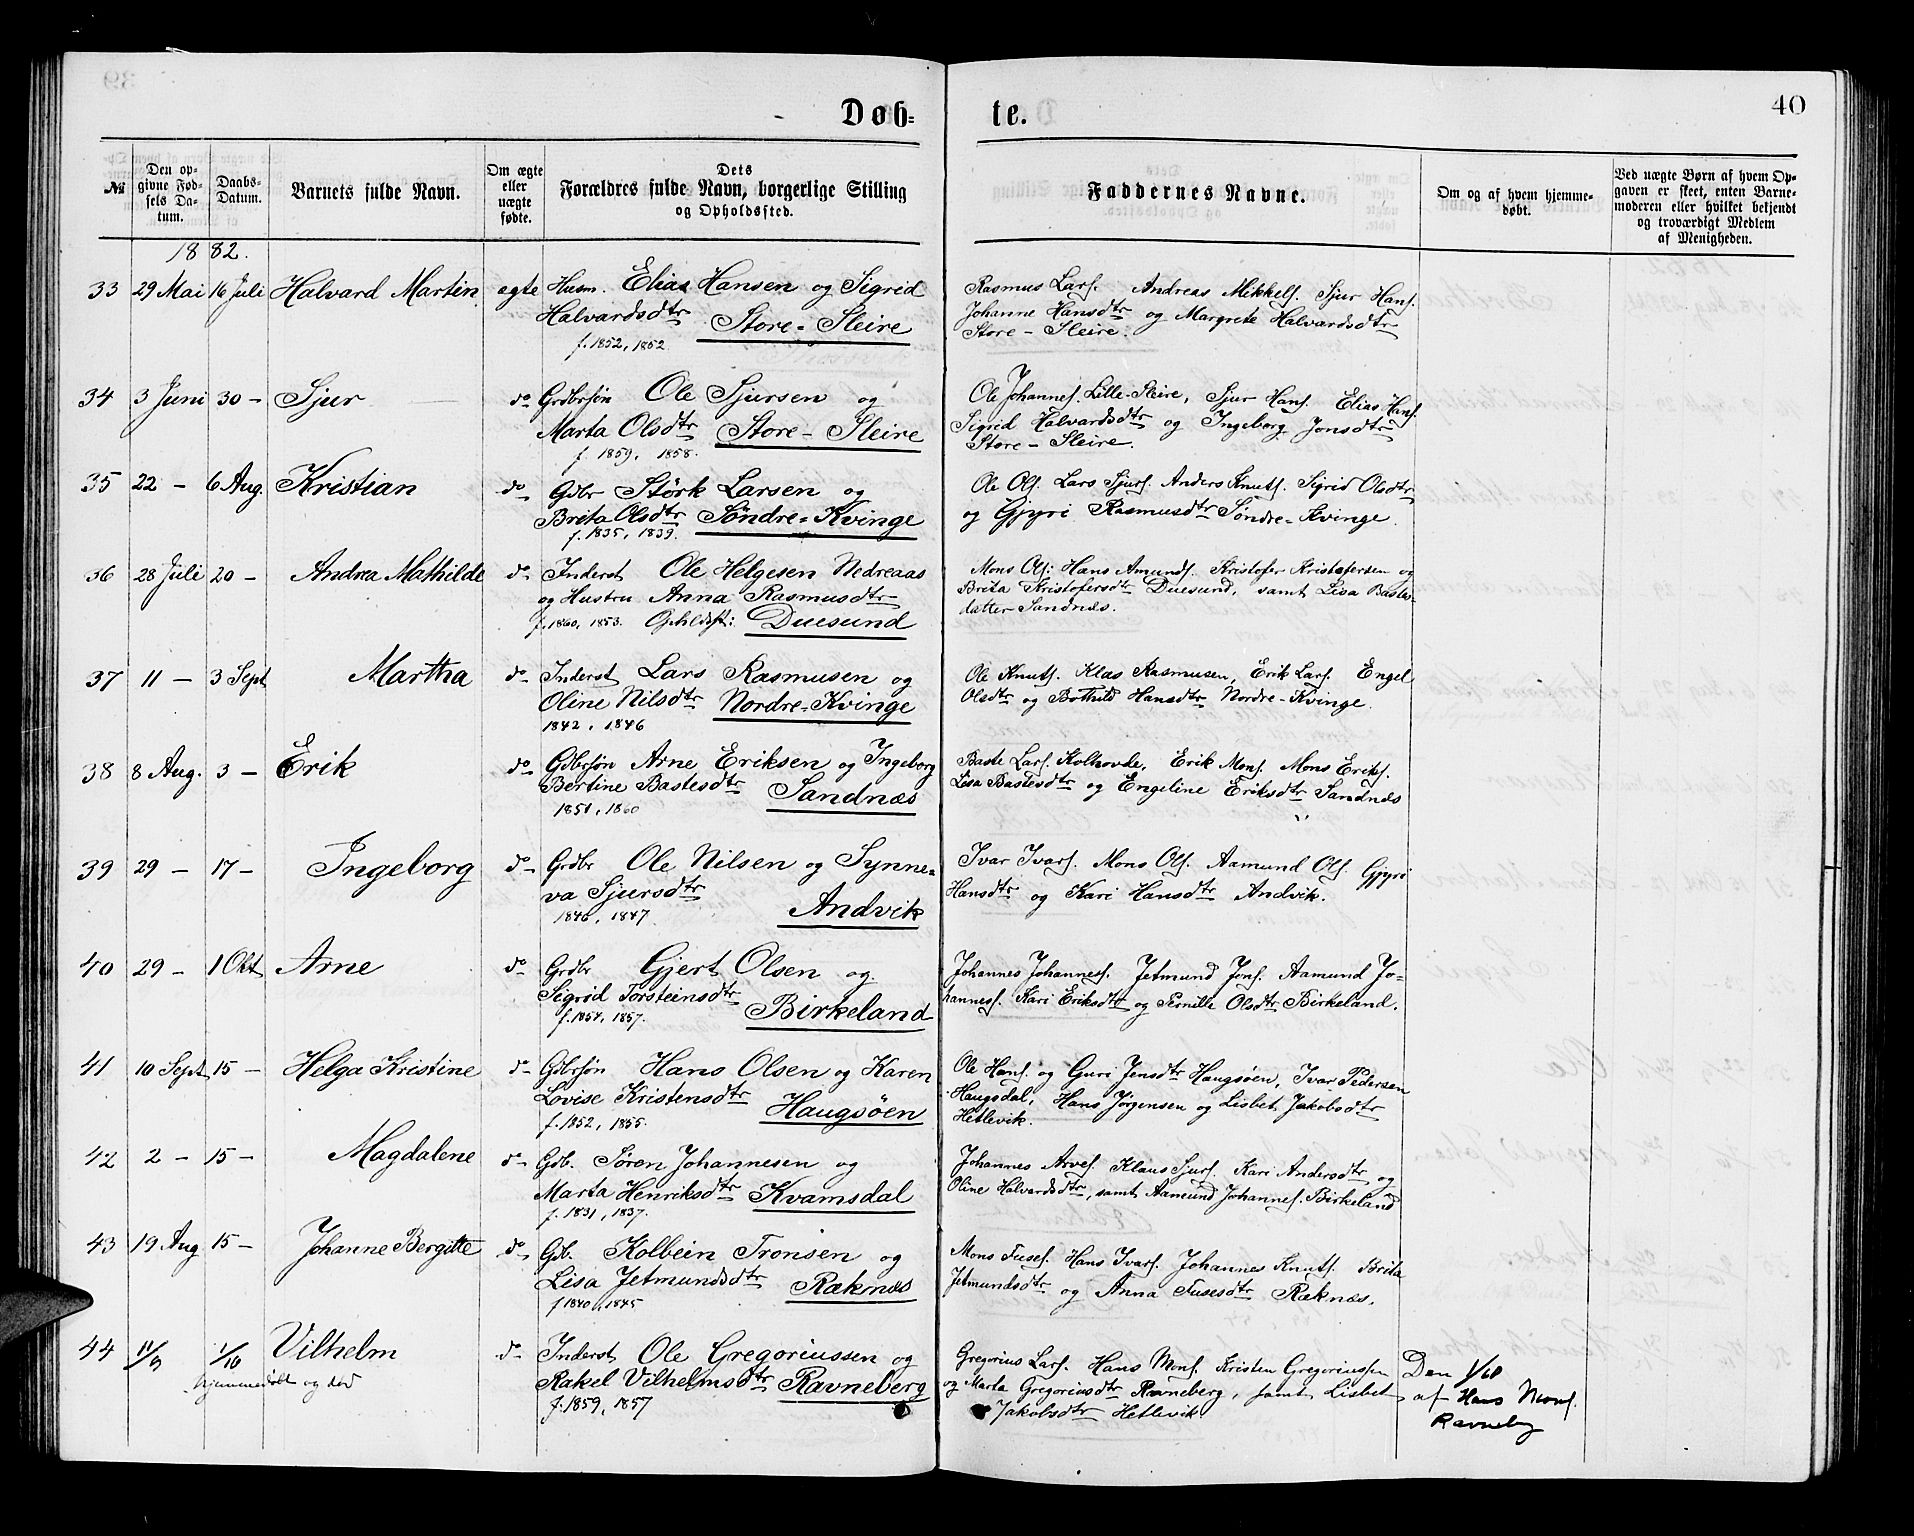 40
Døb=
te.
№
Den op-
givne Fød-
sels Da-
tum.
Daabs-
Datum.
Barnets fulde Navn.
Om ægte
eller
uægte
fødte.
Dets
Forældres fulde Navn, borgerlige Stilling
og Opholdssted.
Faddernes Navne.
Om og af hvem hjemme-
døbt.
Ved uægte Børn af hvem Op-
gaven er skeet, enten Barne-
moderen eller hvilket bekjendt
og troværdigt Medlem
af Menigheden.
1882.
33 29 Mai 16 Juli Halvard Martin egte Husm. Elias Hansen og Sigrid
Halvardsdtr Store-Sleire
f. 1852, 1852.
Rasmus Lars. Andreas Mikkels. Sjur Hans.
Johanne Hansdtr og Margrete Halvardsdtr
Store-Sleire.
34 3 Juni 30 - Sjur do Grdbrsøn Ole Sjursen og
Marta Olsdtr Store-Sleire
f. 1859, 1858.
Ole Johannes. Lille-Sleire, Sjur Hans. Elias Hans.
Sigrid Halvardsdtr og Ingeborg Jonsdtr
Store-Sleire.
35 22 - 6 Aug. Kristian do Gdbr Størk Larsen og
Brita Olsdtr Søndre=Kvinge
f. 1835, 1839.
Ole Ols. Lars Sjurs. Anders Knuts. Sigrid Olsdtr
og Gjyri Rasmusdtr Søndre-Kvinge.
36 28 Juli 20 - Andrea Mathilde do Inderst Ole Helgesen Nedreaas
og Hustru Anna Rasmusdtr
f. 1860, 1853. Opholdsst: Duesund
Mons Ols: Hans Amunds. Kristofer Kristofersen og
Brita Kristofersdtr Duesund, samt Lisa Bastes-
datter Sandnæs.
37 11 - 3 Sept Martha do Inderst Lars Rasmusen og
Oline Nilsdtr Nordre=Kvinge
1842, 1846
Ole Knuts. Klas Rasmusen, Erik Lars. Engel
Olsdtr og Bothild Hansdtr Nordre-Kvinge.
38 8 Aug. 3 - Erik do Gdbrsøn Arne Eriksen og Ingeborg
Bertine Bastesdtr Sandnæs
1851, 1860
Baste Lars. Kolhovde, Erik Mons. Mons Eriks.
Lisa Bastesdtr og Engeline Eriksdtr Sandnæs
39 29 - 17 - Ingeborg do Grdbr Ole Nilsen og Synne-
va Sjursdtr Andvik
1846, 1847.
Ivar Ivars. Mons Ols. Aamund Ols. Gjyri
Hansdtr og Kari Hansdtr Andvik.
40 29 - 1 Okt Arne do Grdbr Gjert Olsen og
Sigrid Torsteinsdtr Birkeland
f. 1854, 1857.
Johannes Johannes. Jetmund Jons. Aamund Jo-
hannes. Kari Eriksdtr og Pernille Olsdtr Birkeland.
41 10 Sept 15 - Helga Kristine do Gdbrsøn Hans Olsen og Karen
Lovise Kristensdtr Haugsøen
f. 1852, 1855.
Ole Hans. og Guri Jensdtr Haugsøen, Ivar Pedersen
Haugsdal, Hans Jørgensen og Lisbet Jakobsdtr
Hetlevik.
42 2 - 15 - Magdalene do Gdb. Søren Johannesen og
Marta Henriksdtr Kvamsdal
f. 1831, 1837.
Johannes Arves. Klaus Sjurs. Kari Andersdtr og
Oline Halvardsdtr, samt Aamund Johannes. Birkeland
43 19 Aug 15 - Johanne Bergitte do Gdb. Kolbein Tronsen og
Lisa Jetmundsdtr Ræknæs
f 1840, 1845
Mons Fuses. Hans Ivars. Johannes Knuts. Brita
Jetmundsdtr og Anna Fusesdtr Ræknæs.
44 11/9 1/10 Vilhelm do Inderst Ole Gregoriussen og
hjemmedøbt og død
Rakel Vilhelmsdtr Ravneberg
f. 1859, 1857
Gregorius Lars. Hans Mons. Kristen Gregoriussen
og Marta Gregoriusdtr Ravneberg, samt Lisbet
Jakobsdtr Hetlevik
Den
af Hans Mons.
Ravneberg